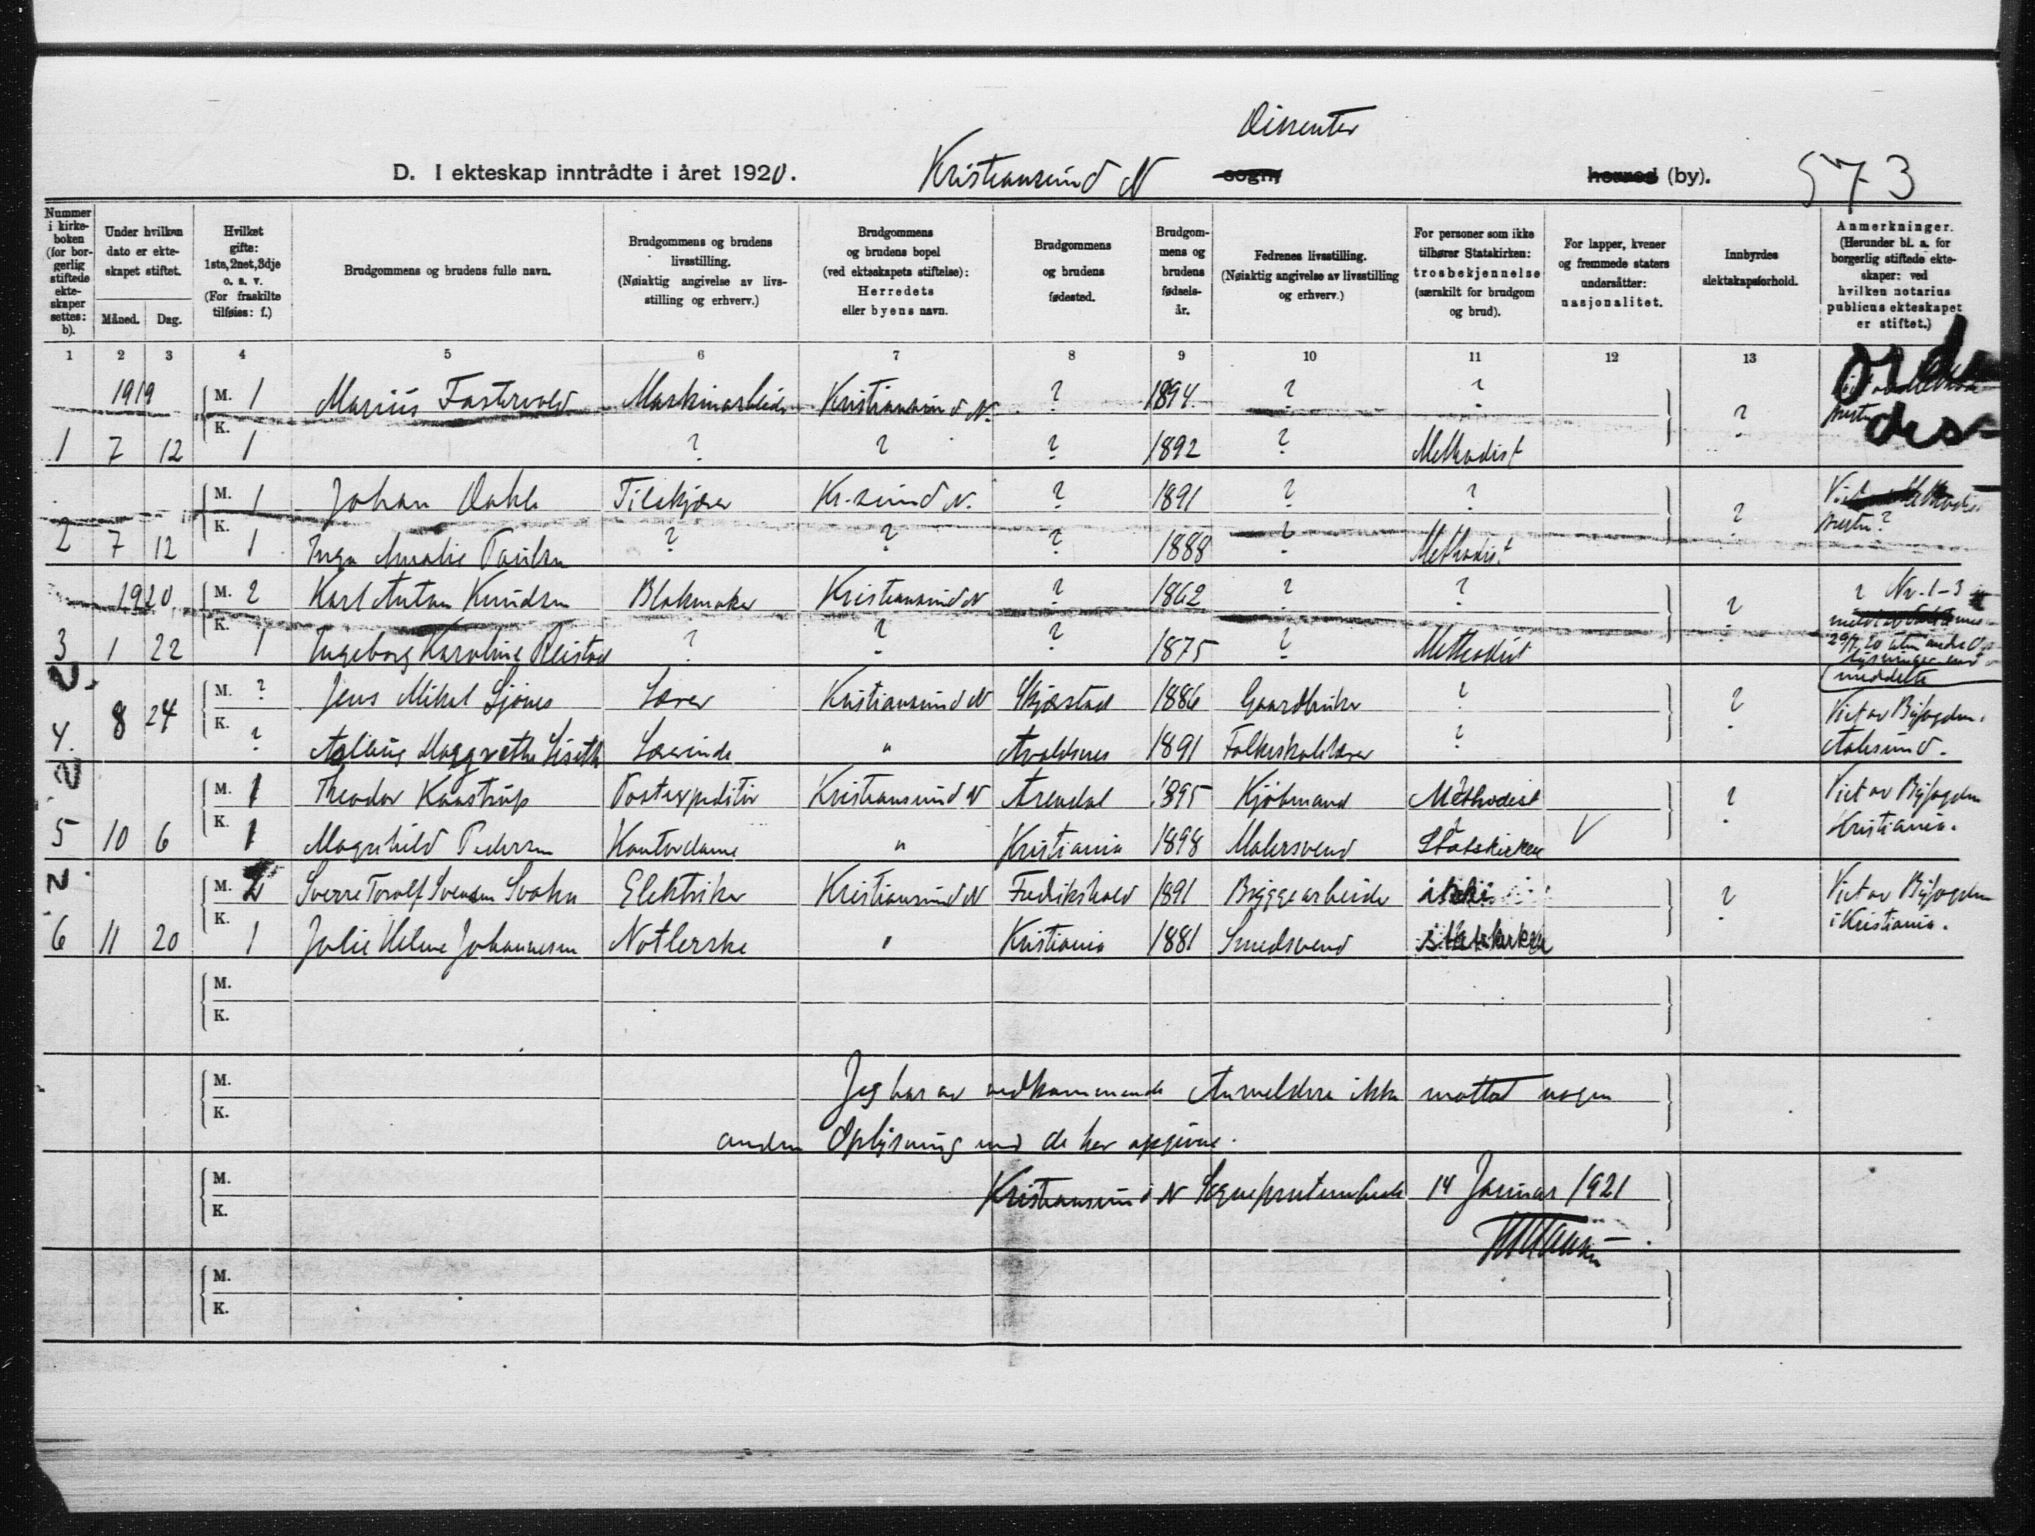 Dissenter
D. I ekteskap inntrådte i året 1920. Kristiansund N sogn herred (by). 573
Nummer i kirkeboken (for borgerlig stiftede ekteskaper settes: b).
Under hvilken dato er ekteskapet stiftet.
Måned. Dag.
Hvilket gifte: 1ste, 2net, 3dje o. s. v. (For fraskilte tilføies: f.)
Brudgommens og brudens fulle navn.
Brudgommens og brudens livsstilling. (Nøiaktig angivelse av livsstilling og erhverv.)
Brudgommens og brudens bopel (ved ekteskapets stiftelse): Herredets eller byens navn.
Brudgommens og brudens fødested.
Brudgommens og brudens fødselsår.
Fedrenes livsstilling. (Nøiaktig angivelse av livsstilling og erhverv.)
For personer som ikke tilhører Statskirken: trosbekjennelse (særskilt for brudgom og brud).
For lapper, kvener og fremmede staters undersåtter: nasjonalitet.
Innbyrdes slektskapsforhold.
Anmerkninger. (Herunder bl. a. for borgerlig stiftede ekteskaper: ved hvilken notarius publicus ekteskapet er stiftet.)
1 2 3 4 5 6 7 8 9 10 11 12 13
1919 M. 1 Marius Fastervold Maskinarbeider Kristiansund N. ? 1894. ? ? ?
1 7 12 K. 1 ? ? ? 1892 ? Methodist
M. 1 Johan Dahle Tilskjærer Kr.sund N. ? 1891 ? ? ?
2 7 12 K. 1 Inga Amalie Paulsen ? ? ? 1888 ? Methodist
1920 M. 2 Karl Anton Knudsen Blokmaker Kristiansund N ? 1862 ? ? ? ? Nr. 1-3
3 1 22 K. 1 Ingeborg Karoline Reistad ? ? ? 1875 ? Methodist
meddelte
2. M. ? Jens Mikal Sjönes Lærer Kristiansund N Skjærstad 1886 Gaardbruker ? ? Viet av Byfogden
4. 8 24 K. ? Margrethe Lærerinde " Avaldsnes 1891 Folkeskolelærer ? Aalesund.
2 M. 1 Theodor Kaastrup Postexpeditör Kristiansund N Arendal 1895 Kjöbmand Methodist ? Viet av Byfogden
5 10 6 K. 1 Magnhild Pedersen Kontordame " Kristiania 1898 Malersvend Statskirken V Kristiania.
2. M. 2 Sverre Torolf Svendsen Svahn Elektriker Kristiansund N Fredrikshald 1891 Bryggearbeider ? Viet av Byfogden
6 11 20 K. 1 Julie Helene Johannesen " Kristiania 1881 Smedsvend statskirken i Kristiania.
M.
K.
M.
K.
Jeg har av vedkommende Anmeldere ikke mottat nogen
anden Oplysning end de her opgivne.
M.
K.
Kristiansund N Sogneprestembede 14 Januar 1921
M.
K.